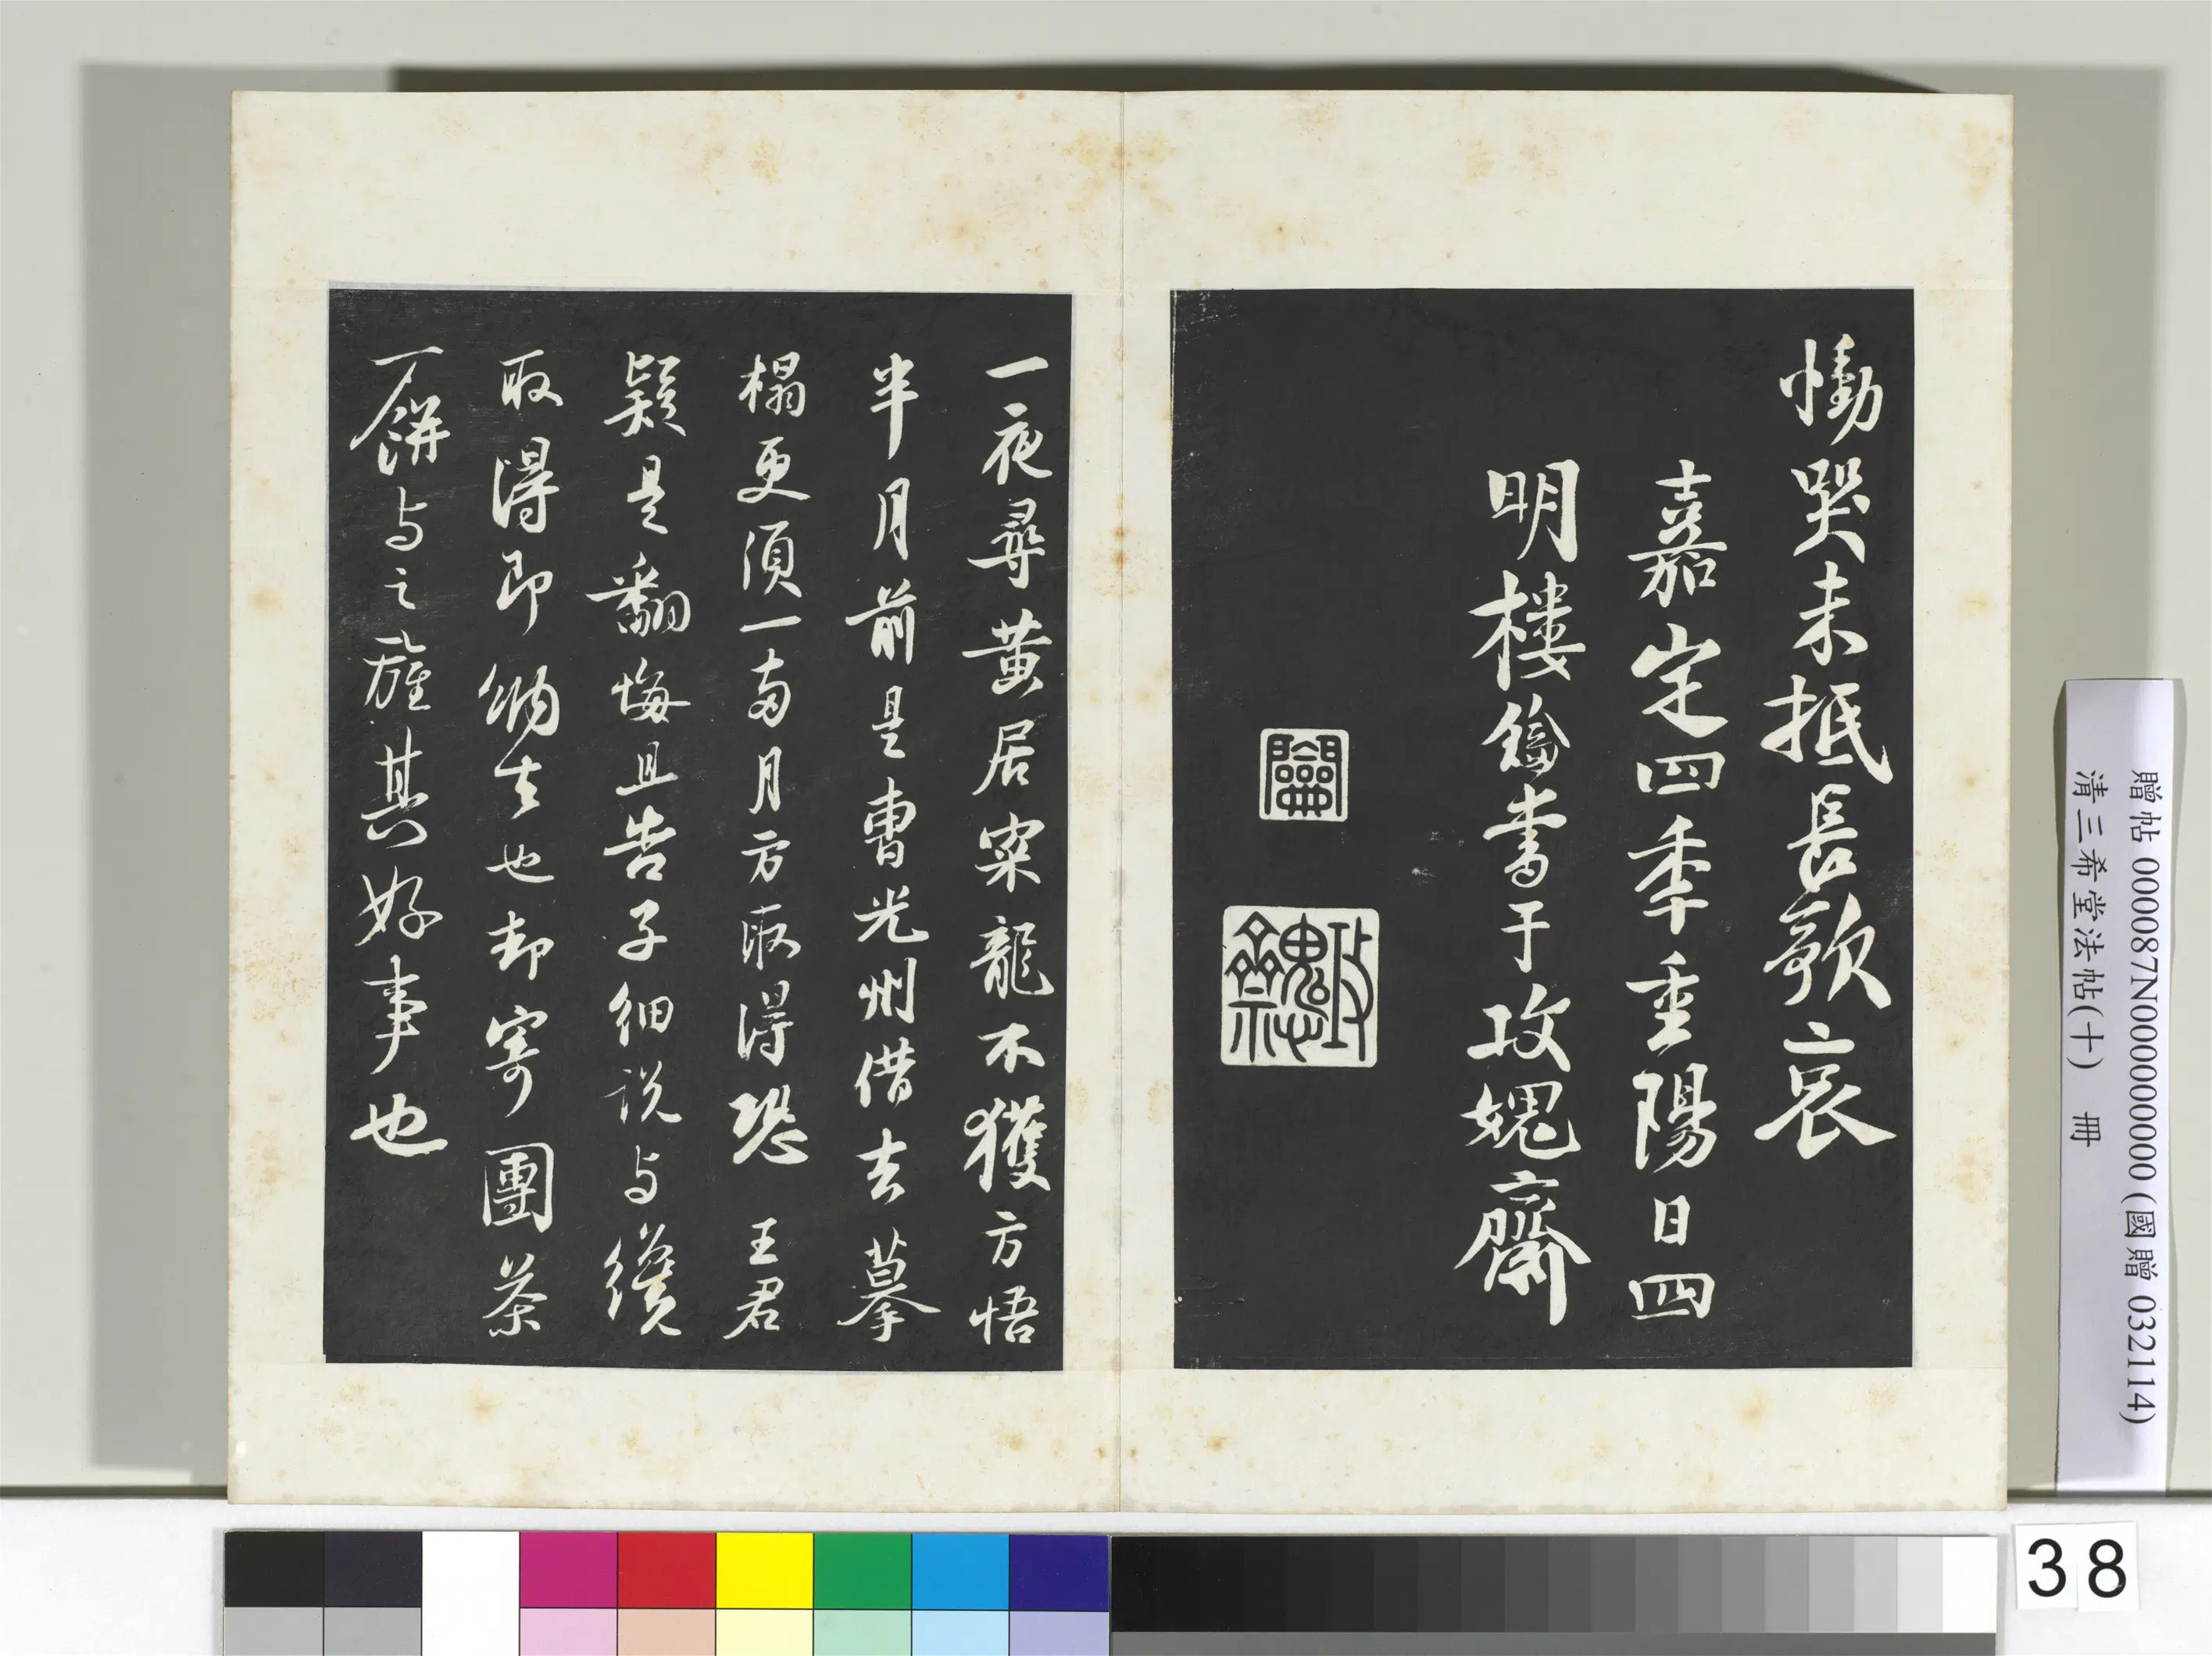 慟哭未抵長歌哀
嘉定四季重陽日四
明樓鑰書于攻媿齋
攻媿齋
一夜尋黃居寀龍不獲方悟
半月前是曹光州借去摹
榻更須一兩月方取得恐 王君
疑是翻悔且告子細說与纔
取得即納去也却寄團茶
一餅与之旌其好事也
贈帖 000087N000000000 (國贈 032114)
清三希堂法帖(十) 冊
38